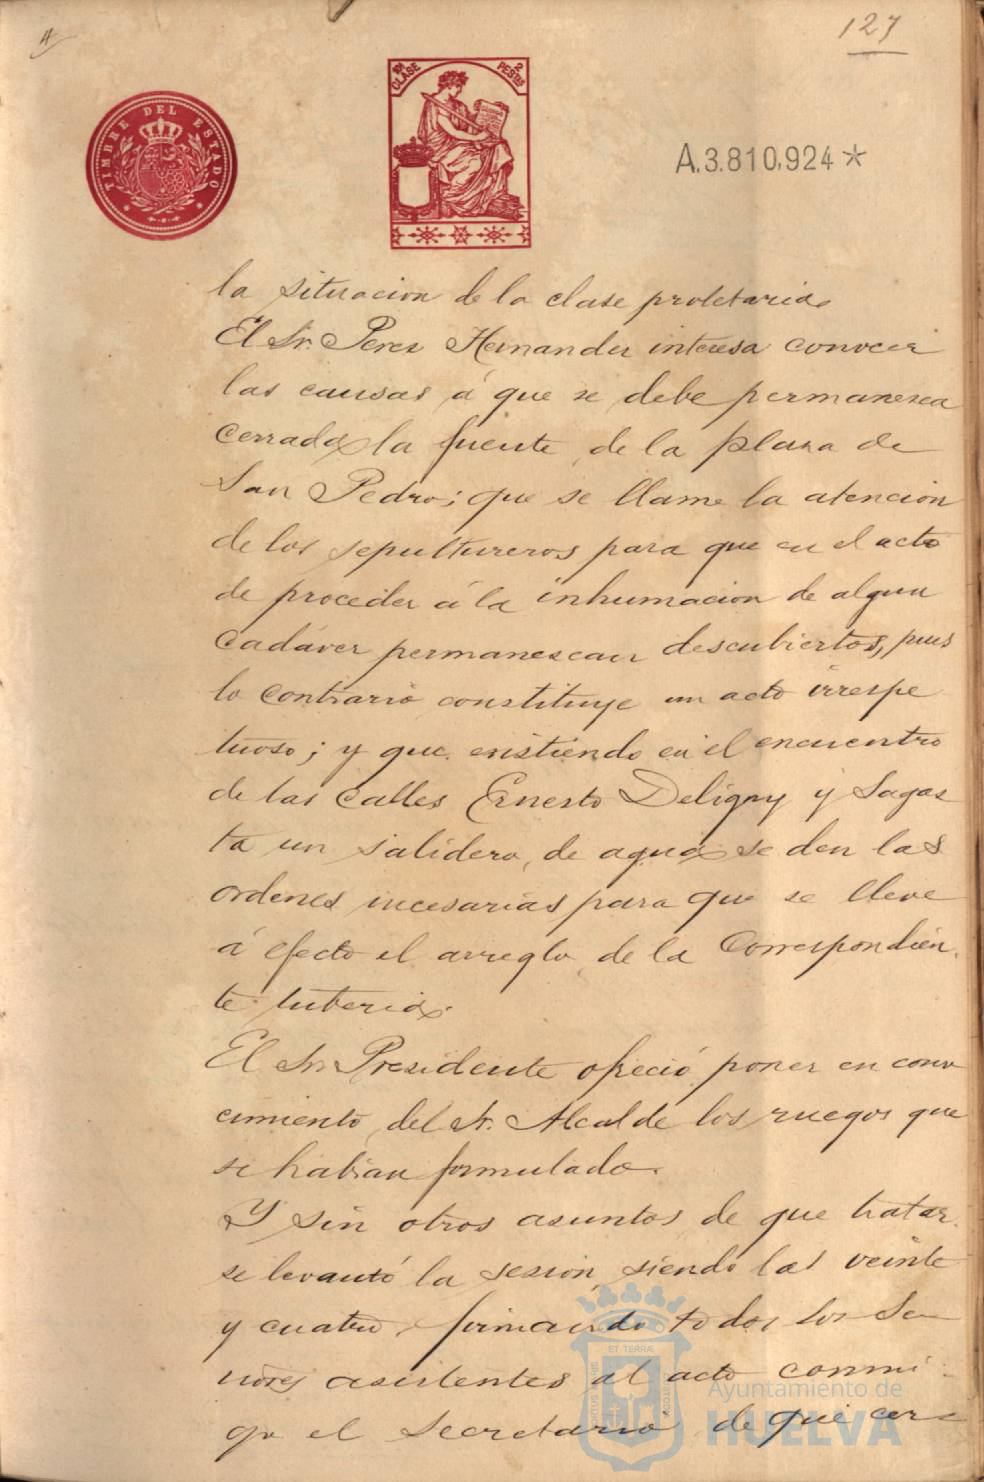 4
127
TIMBRE DEL ESTADO
10ª CLASE
2 PESETAS
A.3.810,924*
la situacion de la clase proletaria.
El Sr. Perez Hernandez interesa conocer
las causas á que se debe permanesca
cerrada la fuente de la plaza de
San Pedro; que se llame la atencion
de los sepultureros para que en el acto
de proceder á la inhumacion de algun
cadáver permanescan descubiertos, pues
lo contrario constituye un acto irrespe
tuoso; y que existiendo en el encuentro
de las calles Ernesto Deligny y Sagas
ta un salidero de agua se den las
ordenes necesarias para que se lleve
á efecto el arreglo de la Correspondien
te tuberia.
El Sr. Presidente ofreció poner en cono
cimiento del Sr. Alcalde los ruegos que
se habian formulado.
Y sin otros asuntos de que tratar
se levantó la sesion siendo las veinte
y cuatro, firmando todos los Se
ñores asistentes al acto conmi
go el Secretario de que cer
ET TERRÆ
Ayuntamiento de
HUELVA